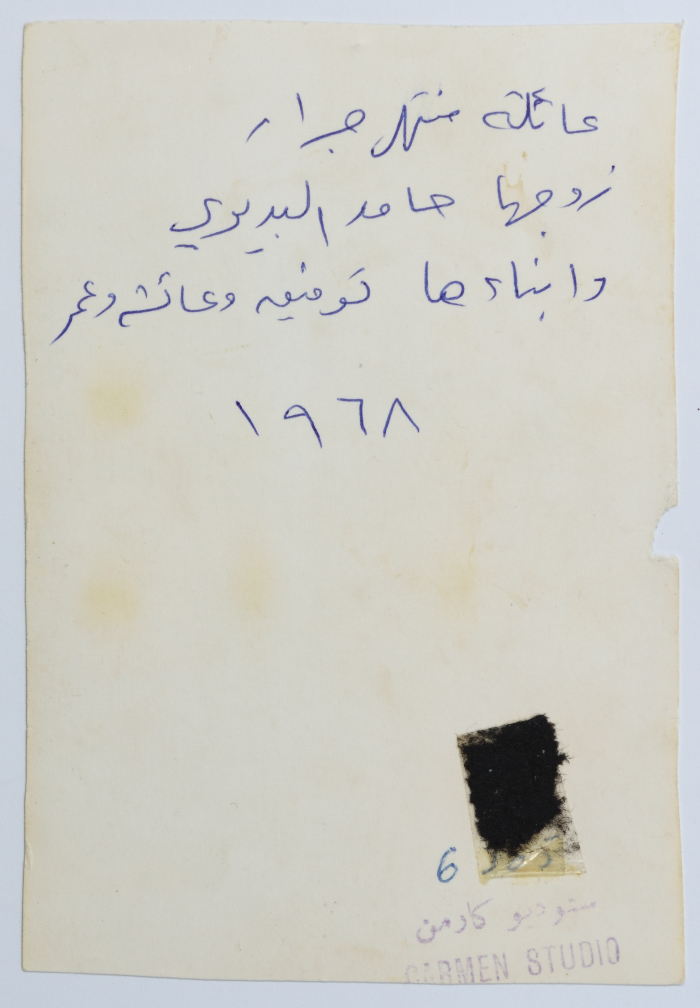 عائلة منتهى جرار
زوجها حامد البديوي
وابناءها توفيق وعائشه وعمر
١٩٦٨
6
ستوديو كارمن
CARMEN STUDIO